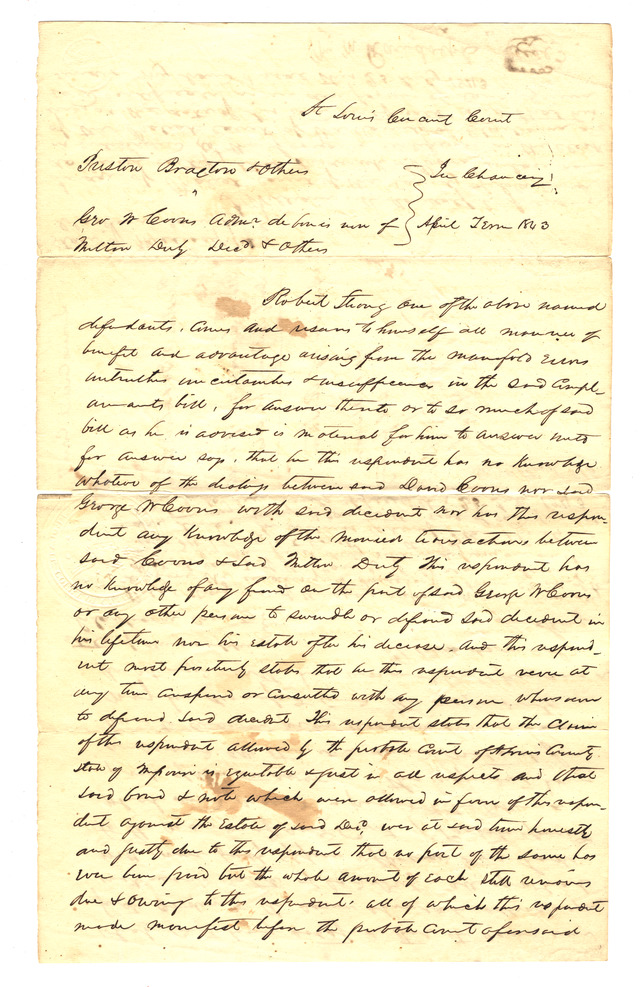 St Louis Circuit Court
Preston Braxton & Others
In Chancery
"
Geo W Coons Admr de bonis non of
April Term 1843
Milton Duty Decd & Others
Robert Strong one of the above named
defendants, comes and reserves to himself all manner of
benefit and advantage arising from the manifold errors
untruths uncertainties & insufficiences in the said Compl-
ainants bill, for answer thereto or to so much of said
bill as he is advised is material for him to answer unto
for answer says, that he this respondent has no Knowledge
whatever of the dealings between said David Coons nor said
George W Coons with said decedent nor has this respon-
dent any Knowledge of the monied transactions between
said Coons & said Milton Duty This respondent has
no Knowledge of any fraud on the part of said George W Coons
or any other person to swindle or defraud said decedent in
his lifetime nor his Estate after his decease. And this respond-
ent most positively states that he this respondent never at
any time conspired or consulted with any person whomsoever
to defraud said decedent This respondent states that the Claim
of this respondent allowed by the probate Court of St Louis County
State of Missouri is equitable & just in all respects and that
said bond & note which were allowed in favor of this respon-
dent against the Estate of said Decd were at said time honestly
and justly due to this respondent that no part of the same has
ever been paid but the whole amount of each still remains
due & owing to this respondent. all of which this respondent
made manifest before the probate Court aforesaid